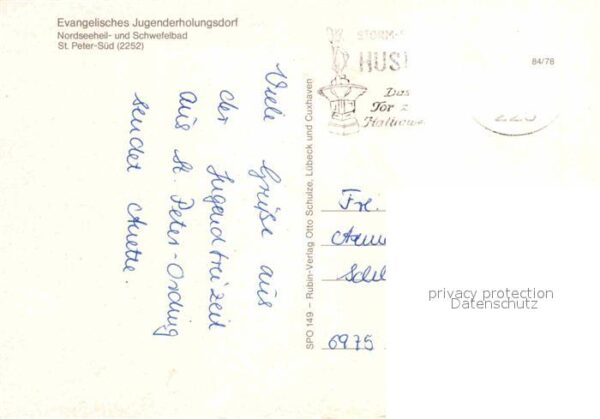 Evangelisches Jugenderholungsdorf
Nordseeheil- und Schwefelbad
St. Peter-Süd (2252)
84/78
STORM-
HUS
Das
Tor z
Halligwe
Viele Grüße aus
der Jugendfreizeit
aus St. Peter-Ording
sendet Anette.
SPO 149 – Rubin-Verlag Otto Schulze, Lübeck und Cuxhaven
Frl.
6975
privacy protection
Datenschutz